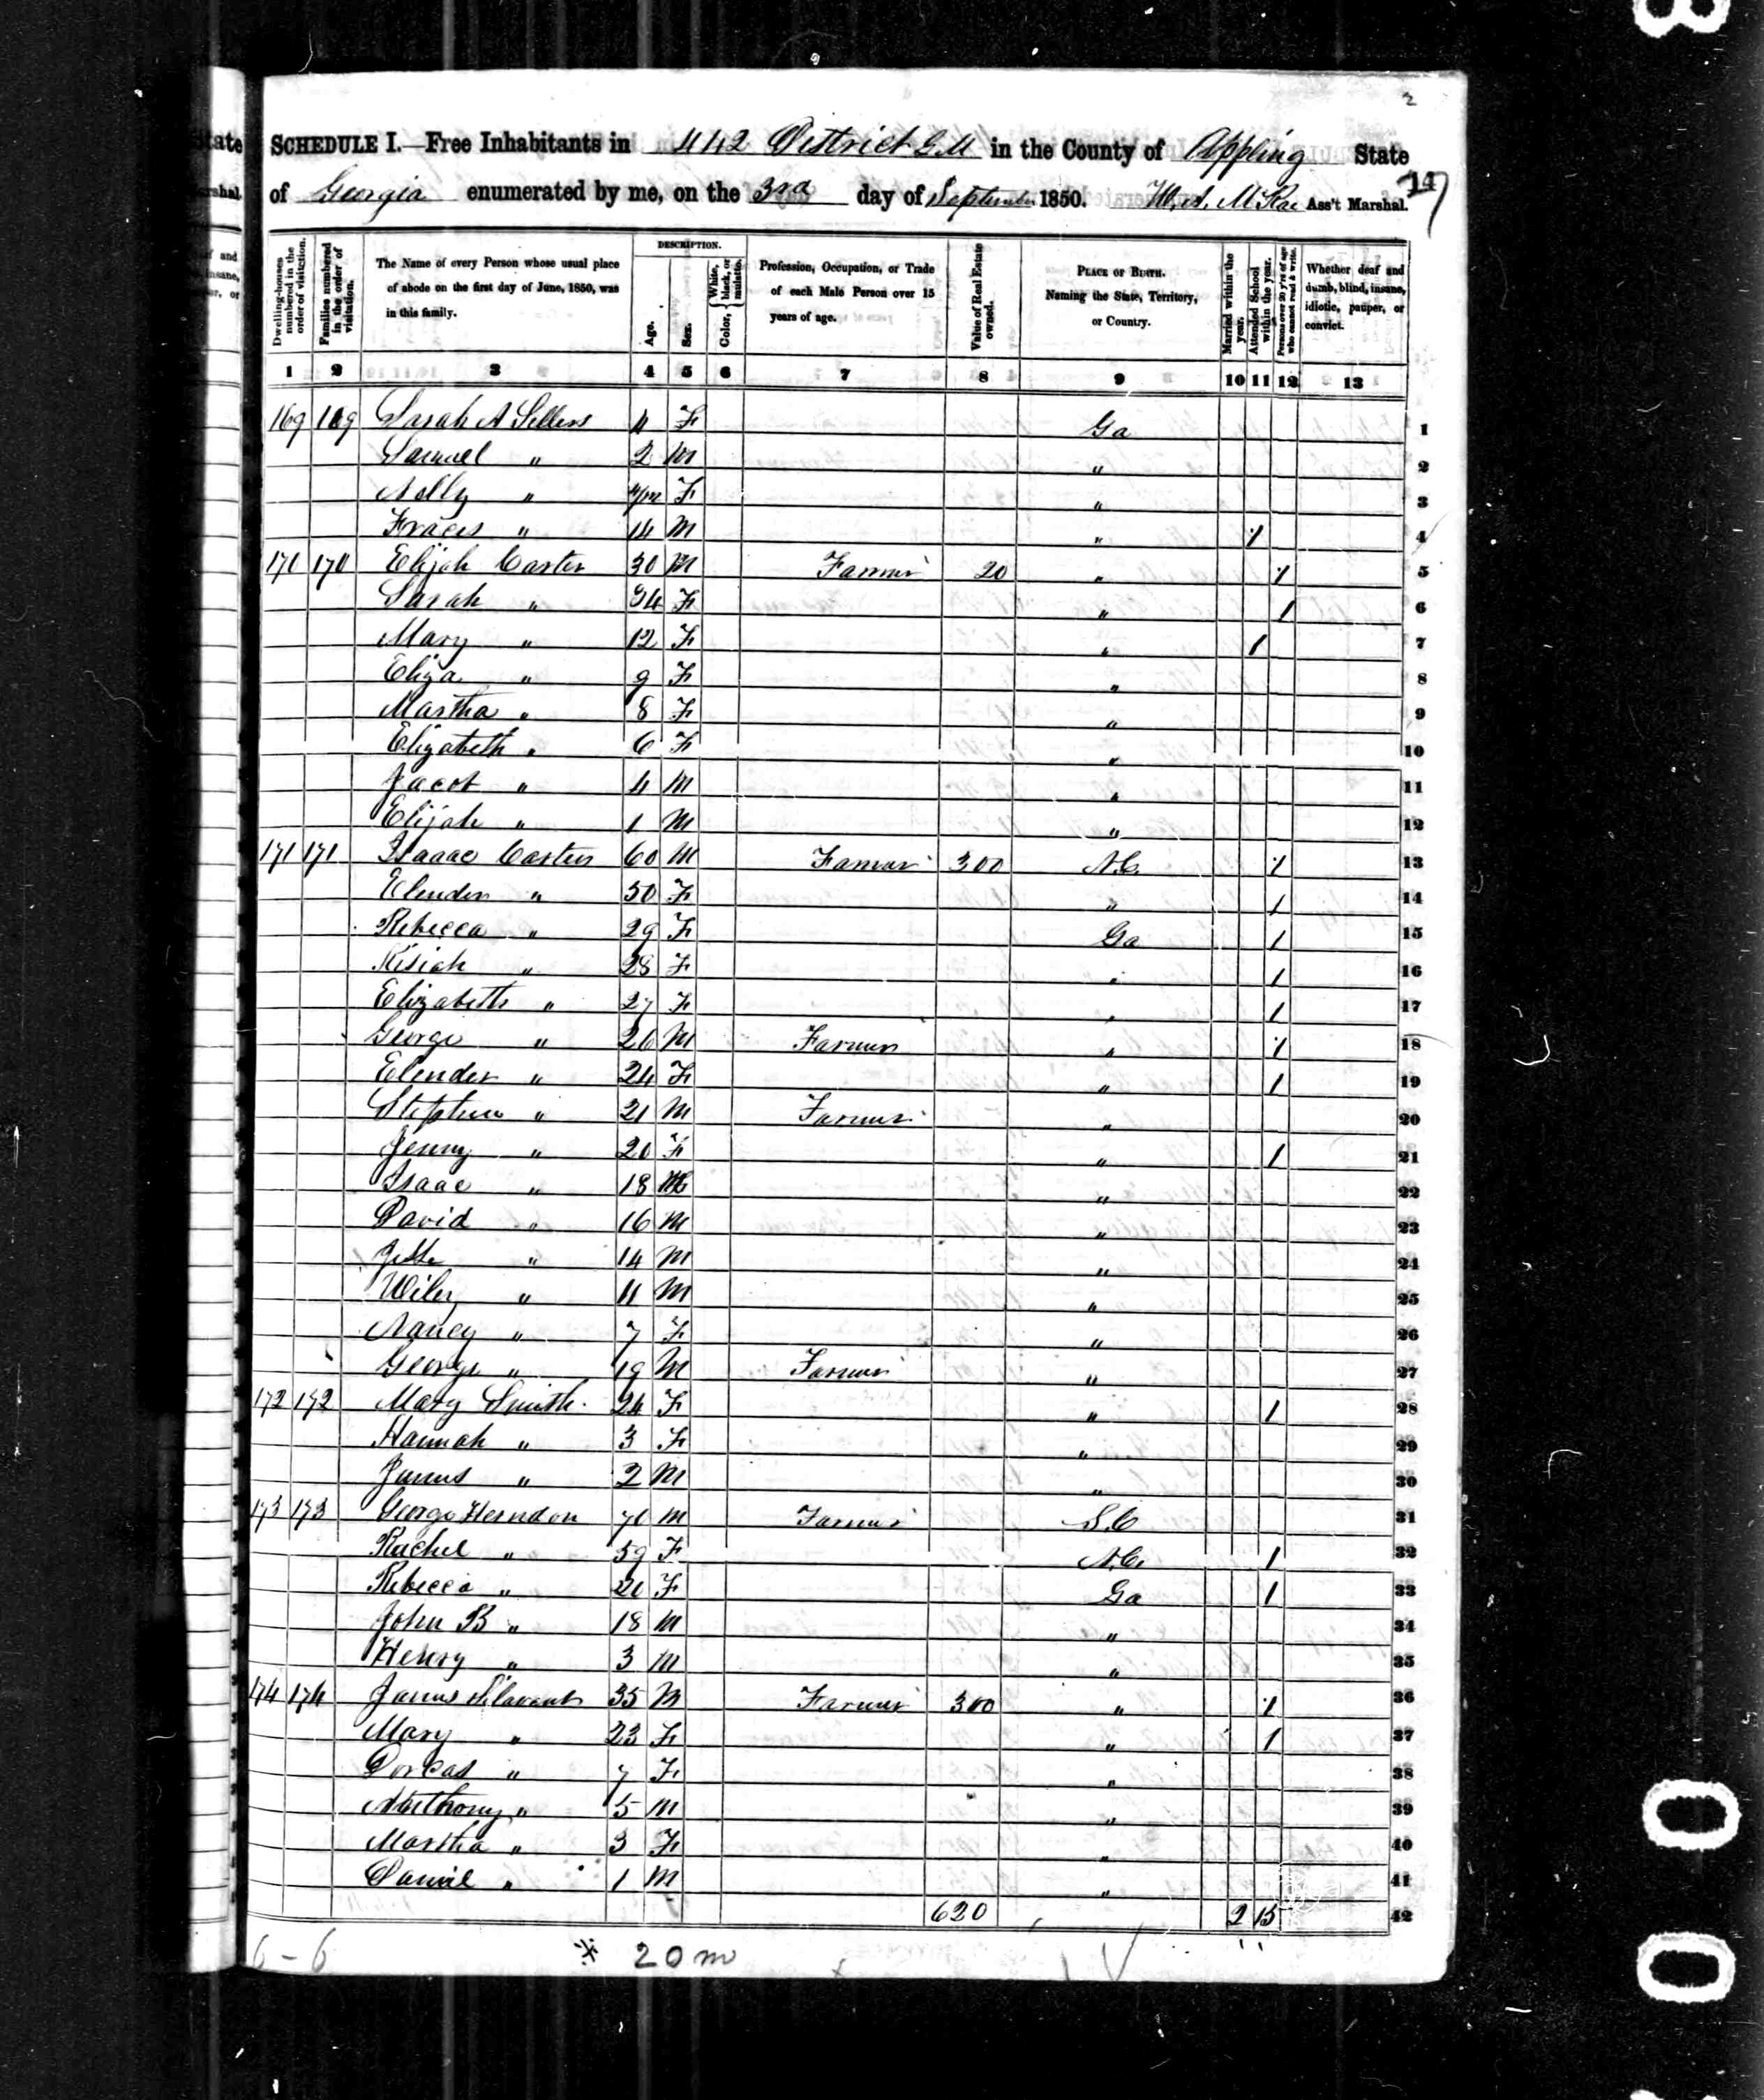 2
SCHEDULE I.—Free Inhabitants in 442 District G.M in the County of Appling State
of Georgia enumerated by me, on the 3rd day of September 1850. McRae Ass't Marshal.
147
Dwelling-houses numbered in the order of visitation.
Families numbered in the order of visitation.
The Name of every Person whose usual place of abode on the first day of June, 1850, was in this family.
DESCRIPTION.
Age.
Sex.
Color, { White, black, or mulatto.
Profession, Occupation, or Trade of each Male Person over 15 years of age.
Value of Real Estate owned.
PLACE OF BIRTH. Naming the State, Territory, or Country.
Married within the year.
Attended School within the year.
Persons over 20 y'rs of age who cannot read & write.
Whether deaf and dumb, blind, insane, idiotic, pauper, or convict.
1 2 3 4 5 6 7 8 9 10 11 12 13
169 169 Sarah A Sellers 4 F Ga 1
Samuel " 2 M " 2
Nelly " F " 3
" 14 M " 1 4
170 170 Elijah Carter 30 M Farmer 20 " 1 5
Sarah " 34 F " 1 6
Mary " 12 F " 1 7
Eliza " 9 F " 8
Martha " 8 F " 9
Elizabeth " 6 F " 10
Jacob " 4 M " 11
Elijah " 1 M " 12
171 171 Isaac Carter 60 M Farmer 300 N.C. 1 13
Elender " 50 F " 1 14
Rebecca " 29 F Ga 1 15
Kisiah " 28 F " 1 16
Elizabeth " 27 F " 1 17
George " 26 M Farmer " 1 18
Elender " 24 F " 1 19
Stephen " 21 M Farmer " 20
Jenny " 20 F " 1 21
Isaac " 18 M " 22
David " 16 M " 23
Jesse " 14 M " 24
Wiley " 11 M " 25
Nancy " 7 F " 26
George " 19 M Farmer " 27
172 172 Mary Smith 24 F " 1 28
Hannah " 3 F " 29
James " 2 M " 30
173 173 George Herndon 70 M Farmer S.C 31
Rachel " 59 F N.C. 1 32
Rebecca " 20 F Ga 1 33
John B " 18 M " 34
Henry " 3 M " 35
174 174 James 35 M Farmer 300 " 1 36
Mary " 23 F " 1 37
Dorcas " 7 F " 38
Anthony " 5 M " 39
Martha " 3 F " 40
Daniel " 1 M " 41
620 2 15 42
6-6 * 20 m